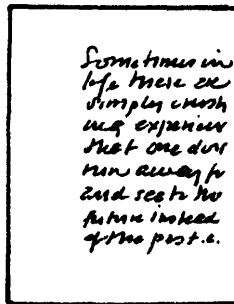 Sometimes in
life there are
simply crush
ing experien
that one does
turn away fr
and see to the
future instead
of the past.